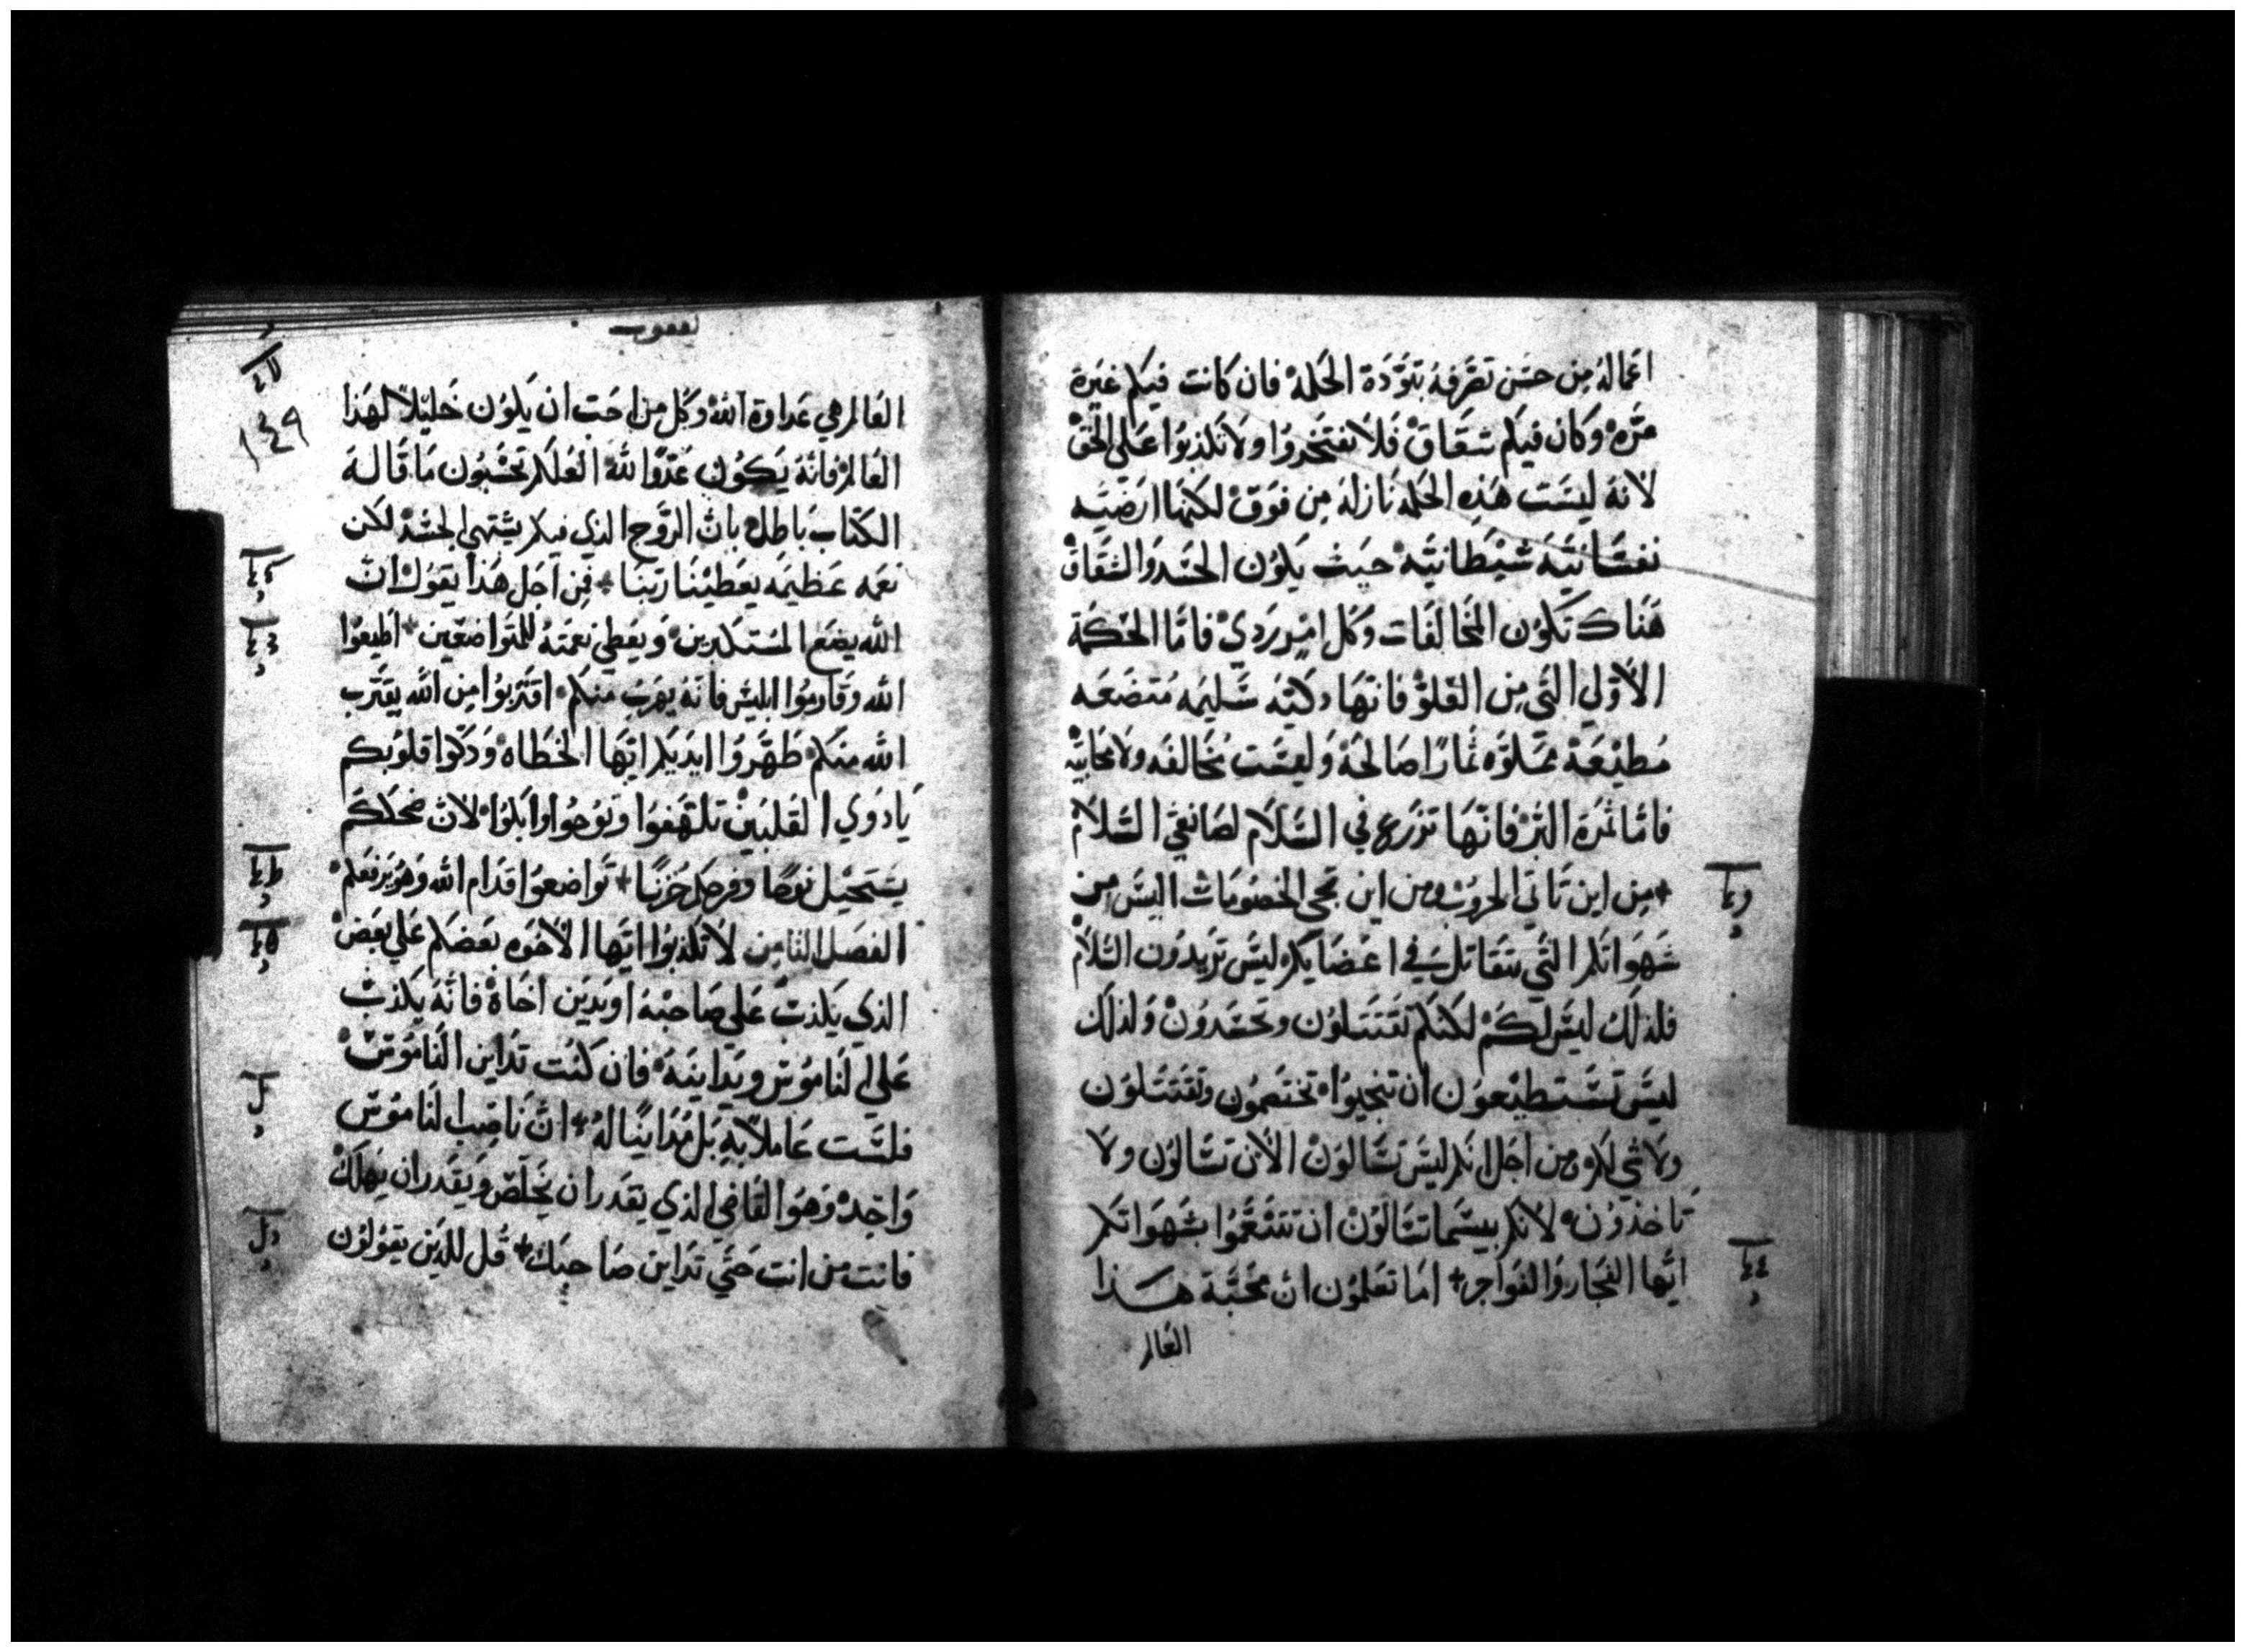 اعماله من حسن تصرفه بتودة الحكمة فان كانت فيكم غيرة
مره وكان فيكم شقاق فلا تفتخروا ولا تكذبوا على الحق
لانه ليست هذه الحكمه نازله من فوق لكنها ارضيه
نفسانيه شيطانيه حيث يكون الحسد والشقاق
هناك تكون المخالفات وكل امر ردي فاما الحكمة
الاولي التي من العلو فانها زكيه سليمه متضعه
مطيعة مملوه ثمارا صالحة وليست مخالفه ولا محابيه
فاما ثمرة البر فانها تزرع في السلام لصانعي السلام
من اين تاتي الحروب ومن اين تجي الخصومات اليس من
شهواتكم التي تتقاتل في اعضايكم ليس تريدون السلام
فلذلك ليس لكم لكنكم تقتتلون وتحسدون ولذلك
ليس تستطيعون ان تنجيوا تختصمون وتقتتلون
ولا شي لكم من اجل انكم ليس تسالون الان تسالون ولا
تاخذون لانكم بيسما تسالون ان تتنعموا بشهواتكم
ايها الفجار والفواجر اما تعلمون ان محبة هذا
العالم
يعقوب
١٤٩
العالم هي عداوة الله وكل من احب ان يكون خليلا لهذا
العالم فانه يكون عدوا لله العلكم تحسبون ما قاله
الكتاب باطل بان الروح الذي فيكم يشتهي الحسد لكن
نعمه عظيمه يعطينا ربنا فمن اجل هذا يقول ان
الله يضع المستكبرين ويعطي نعمته للمتواضعين اطيعوا
الله وقاوموا ابليس فانه يهرب منكم اقتربوا من الله يقترب
الله منكم طهروا ايديكم ايها الخطاه وذكوا قلوبكم
يا ذوي القلبين تلهفوا ونوحوا وابكوا لان ضحككم
يستحيل نوحا وفرحكم حزنا تواضعوا قدام الله وهو يرفعكم
الفصل الثامن لا تكذبوا ايها الاخوه بعضكم علي بعض
الذي يكذب علي صاحبه او يدين اخاه فانه يكذب
علي الناموس ويداينه فان كنت تداين الناموس
فلست عاملا به بل مداينا له ان ناصب الناموس
واحد وهو القاضي الذي يقدر ان يخلص ويقدر ان يهلك
فانت من انت حتي تداين صاحبك قل للذين يقولون